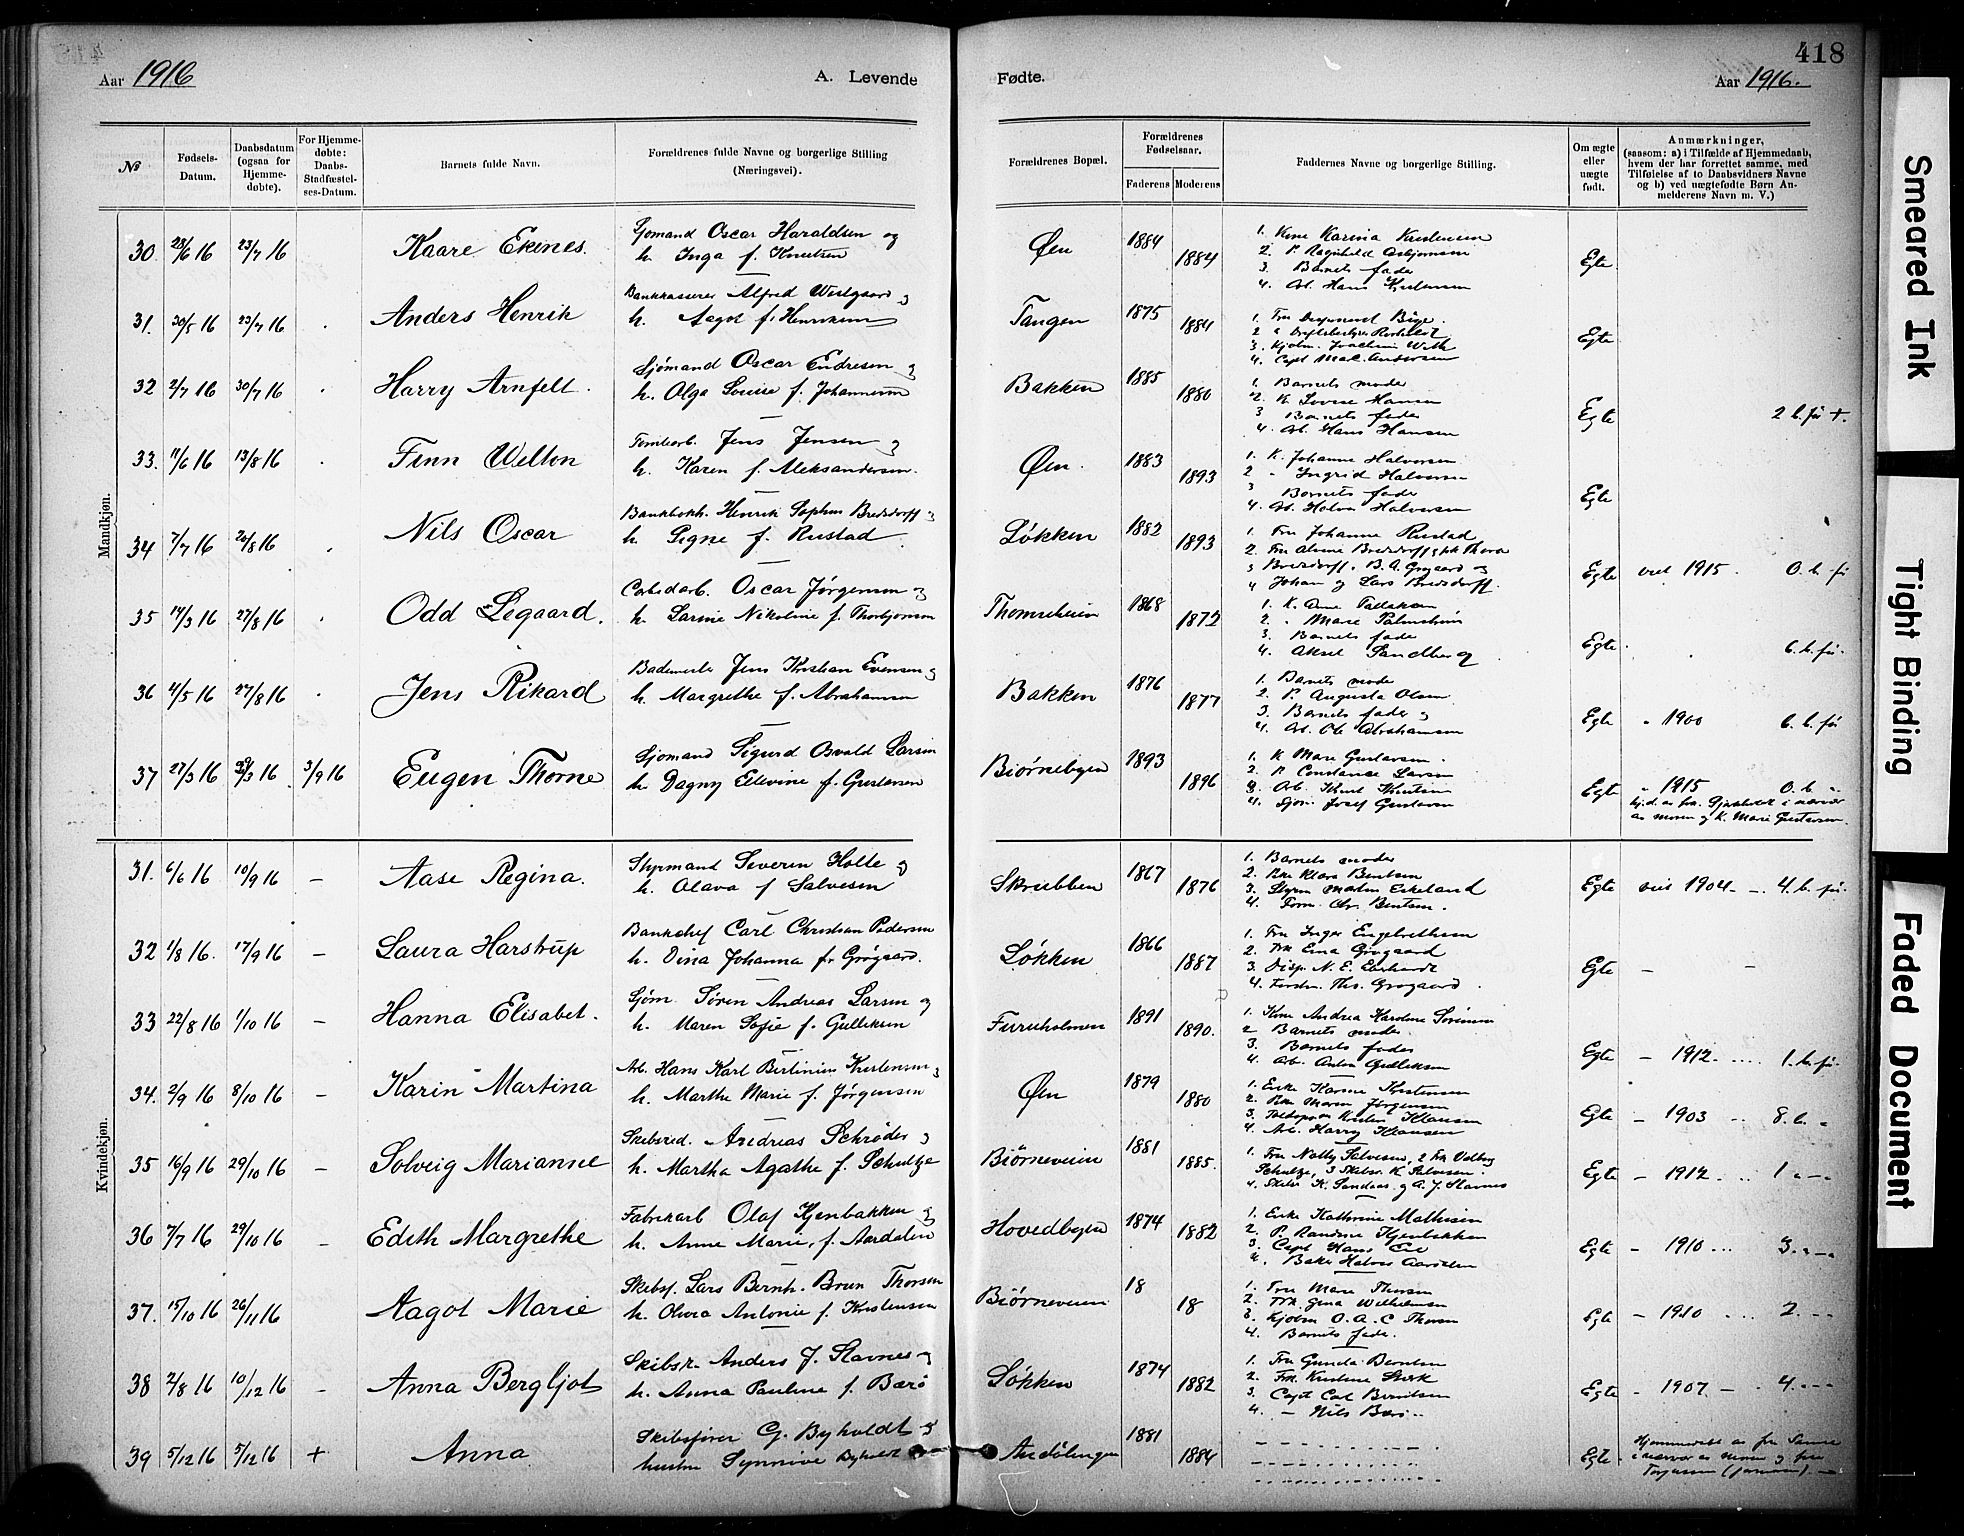 418
Aar 1916
A. Levende
Fødte.
Aar 1916.
No
Fødsels-Datum.
Daabsdatum (ogsaa for Hjemmedøbte).
For Hjemmedøbte: Daabs-Stadfæstelses-Datum.
Barnets fulde Navn.
Forældrenes fulde Navne og borgerlige Stilling (Næringsvei).
Forældrenes Bopæl.
Forældrenes Fødselsaar.
Faderens
Moderens
Faddernes Navne og borgerlige Stilling.
Om ægte eller uægte født.
Anmærkninger,
(saasom: a) i Tilfælde af Hjemmedaab,
hvem der har forrettet samme, med
Tilføielse af to Daabsvidners Navne
og b) ved uægtefødte Børn An-
melderens Navn m. V.)
Mandkjøn.
30. 28/6 16 23/7 16 Kaare Ekenes.
Sjømand Oscar Haraldsen og
h. Inga f. Knutsen
Øen 1884 1884
1. Kone Karina Kristensen
2. P. Ragnhild Asbjørnsen
3. Barnets fader
4. Arb. Hans Kristensen
Egte
31. 30/5 16 23/7 16 Anders Henrik
Bankkasserer Alfred Westgaard og
h. Aagot f. Henriksen
Tangen 1875 1884
1. Fru
3. Kjøbm. Joachim With
4. Capt Andersen
Egte
32 2/7 16 30/7 16 Harry Arnfelt.
Sjømand Oscar Endresen og
h. Olga Louise f. Johannesen
Bakken 1885 1880
1. Barnets moder
2. K. Lovise Hansen
3 Barnets fader
4. Arb. Hans Hansen
Egte 2 b. før +.
33. 11/6 16 13/8 16 Finn Welton
Tomtearb. Jens Jensen og
h. Karen f. Aleksandersen.
Øen. 1883 1893
1. K. Johanne Halvorsen
2 " Ingrid Halvorsen
3 Barnets fader
4. Arb. Halvor Halvorsen
Egte
34 7/7 16 20/8 16 Nils Oscar
Bankbokh. Henrik Sophus Bredsdorff og
h. Signe f. Rustad.
Løkken 1882 1893
1. Fru Johanne Rustad
2. Fru Alvine Bredsdorff og frk Thora
3 Bredsdorff, B. A. Grøgaard og
4 Johan og Lars Bredsdorff.
Egte viet 1915. 0. b. før
35 14/3 16 27/8 16 Odd Legaard.
Oscar Jørgensen og
h. Larine Nikoline f. Thorbjørnsen
Thomseheien 1868 1872
1. K.
2. " Marie
3. Barnets fader
4. Aksel Sandberg
Egte. 6. b. før.
36 4/5 16 27/8 16 Jens Rikard
Jens Kristian Evensen og
h. Margrethe f. Abrahamsen
Bakken 1876 1877
1. Barnets moder
2. P. Augusta Olsen
3. Barnets fader og
4. Arb. Ole Abrahamsen
Egte " 1900 6. b. før
37 27/3 16 3/9 16 Eugen Thorne
Sjømand Sigurd Osvald Larsen
h. Dagny Ellevine f. Gustavsen
Biørnebogen 1893 1896
1. K Marie Gustavsen.
2. P. Constance Larsen
3. Arb. Knut Knutsen
4. Sjøm. Josef Gustavsen
Egte " 1915 0. b. "
hj.d. av fru i nærvær
av moren og K. Marie Gustavsen.
Kvindekjøn.
31. 6/6 16 10/9 16 — Aase Regina.
Styrmand Severin Holte og
h. Olava f Salvesen
Skrubben 1867 1876
1. Barnets moder
2. Pike Klara Bentsen
3. Styrm Martin Eskeland
4. Tom. Chr. Bentsen.
Egte viet 1904 — 4. b. før.
32 1/8 16. 17/9 16 — Laura Harstrup
Bankchef Carl Christian Pedersen
h. Dina Johanna f. Grøgaard.
Løkken 1866 1887
1. Fru Inger Engelrethsen
2. Frk Ema Grøgaard
3. Disp. N. E.
4. Forstm. Ths. Grøgaard.
Egte — —
33 22/8 16 1/10 16 — Hanna Elisabet.
Sjøm. Søren Andreas Larsen og
h. Maren Sofie f. Gulliksen
Furuholmen 1891 1890.
1. Kone Andrea Karoline Sørensen
2 Barnets moder
3. Barnets fader
4. Arb. Anton Gulliksen
Egte — 1912. .... 1. b. før.
34. 2/9 16 8/10 16 — Karin Martina
Arb. Hans Karl Bertinius Kristensen og
h. Marthe Marie f. Jørgensen
Øen 1879 1880
1. Enke Karine Kristensen
2. Pike Maren Jørgensen
3. Kristen Klausen
4. Arb. Harry Klausen
Egte — 1903 ... 8. b. "
35 16/9 16 29/10 16 — Solveig Marianne
Skibsred. Andreas Schrøder og
h. Martha Agathe f. Schultze
Biørneveien 1881 1885.
1. Fru Nathy Salvesen, 2 Frk Valborg
Schultze, 3 Skibsr. K. Salvesen.
4. Skibsr K. Sandaas og A. J. Stavnes
Egte — 1912. .. 1 " —
36 7/7 16 29/10 16 — Edith Margrethe
Fabrikarb Olaf Kjenbakken og
h. Anne Marie, f. Aardalen
Hovedbogen 1874 1882
1. Enke Kathrine Mathisen
2. P. Randine Kjenbakken
3. Capt Hans Eie
4. Baker Halvor Aardalen
Egte — 1910 ... 3. " —
37. 15/10 16 26/11 16 Aagot Marie
Skibsf. Lars Bernh. Brun Thorsen
h. Olivia Antonie f. Kristensen
Biørneveien 18 18
1. Fru Marie Thorsen
2. Frk. Gina Wilhelmsen
3. Kjøbm O. A. C Thorsen
4. Barnets fader.
Egte — 1910 ... 2. — —
38 2/8 16 10/12 16 — Anna Bergljot
Skibsr. Anders J. Stavnes og
h. Anna Pauline f. Bærø
Løkken 1874 1882
1. Fru Gunda Berntsen
2. Frk. Kristine Stirk
3. Capt Carl Berntsen
4. — Nils Bærø..
Egte — 1907 — . 4. — —
39 5/12 16 5/12 16 + Anna
Skibsfører G. Byholdt og
hustru Synnive Byholdt
1881 1884
Egte — Hjemmedøbt av fru
i nærvær av moren og fru
Torjussen
Smeared Ink
Tight Binding
Faded Document